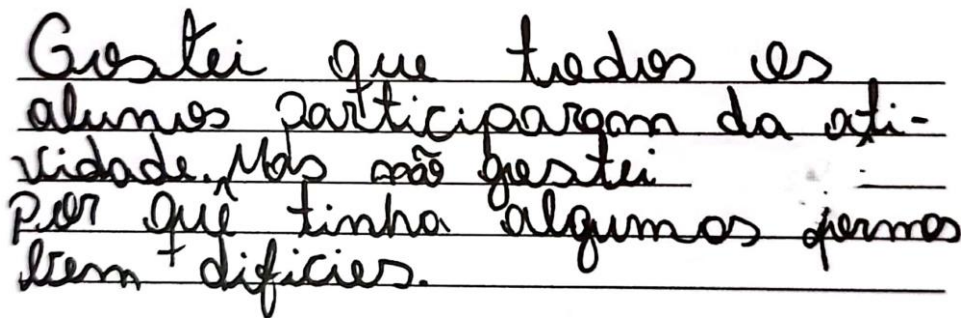 Gostei que todos os
alunos participaram da ati-
vidade, Mas não gostei
por quê tinha algumas formas
bem dificies.